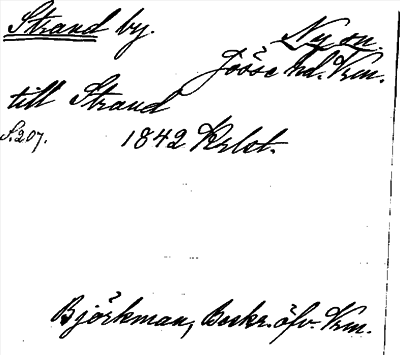 Strand by.
Ny sn.
Jösse hd. Vrm.
till Strand
S.207. 1842 Krlst.
Björkman, Beskr. öfv. Vrm.